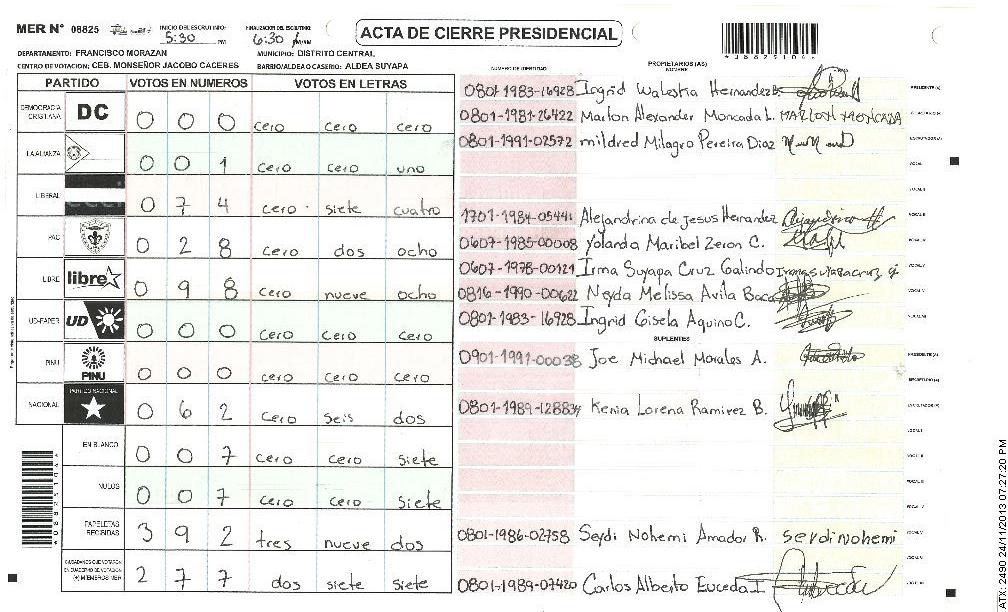 MER Nº 08825 INICIO DEL ESCRUTINIO: 5:30 PM FINALIZACION DEL ESCRUTINIO: 6:30 PM ACTA DE CIERRE PRESIDENCIAL
DEPARTAMENTO: FRANCISCO MORAZAN MUNICIPIO: DISTRITO CENTRAL
CENTRO DE VOTACION: CEB. MONSEÑOR JACOBO CACERES BARRIO/ALDEA O CASERIO: ALDEA SUYAPA
PARTIDO VOTOS EN NUMEROS VOTOS EN LETRAS
DEMOCRACIA CRISTIANA DC 0 0 0 cero cero cero
LA ALIANZA 0 0 1 cero cero uno
LIBERAL 0 7 4 cero siete cuatro
PAC 0 2 8 cero dos ocho
LIBRE libre 0 9 8 cero nueve ocho
UD-FAPER UD 0 0 0 cero cero cero
PINU PINU 0 0 0 cero cero cero
NACIONAL PARTIDO NACIONAL 0 6 2 cero seis dos
EN BLANCO 0 0 7 cero cero siete
NULOS 0 0 7 cero cero siete
PAPELETAS RECIBIDAS 3 9 2 tres nueve dos
CIUDADANOS QUE VOTARON EN CUADERNO DE VOTACION (+) MIEMBROS MER 2 7 7 dos siete siete
NUMERO DE IDENTIDAD PROPIETARIOS (AS) NOMBRE
0801-1983-16928 Ingrid Walestia Hernandez B. PRESIDENTE (A)
0801-1981-26422 Marlon Alexander Moncada L. MARLON MONCADA SECRETARIO (A)
0801-1991-02572 mildred Milagro Pereira Diaz ESCRUTADOR (A)
VOCAL I
VOCAL II
1701-1984-05441 Alejandrina de Jesus Hernandez
0607-1985-00008 Yolanda Maribel Zeron C.
0607-1978-00121 Irma Suyapa Cruz Galindo
0816-1990-00622 Neyda Melissa Avila Baca
0801-1983-16928 Ingrid Gisela Aquino C.
SUPLENTES
0901-1991-00038 Joe Michael Morales A. PRESIDENTE (A)
SECRETARIO (A)
0801-1989-12883 Kenia Lorena Ramirez B. ESCRUTADOR (A)
0801-1986-02758 Seydi Nohemi Amador R. seydi Nohemi
0801-1989-07420 Carlos Alberto Euceda I.
ATX-2490 24/11/2013 07:27:20 PM